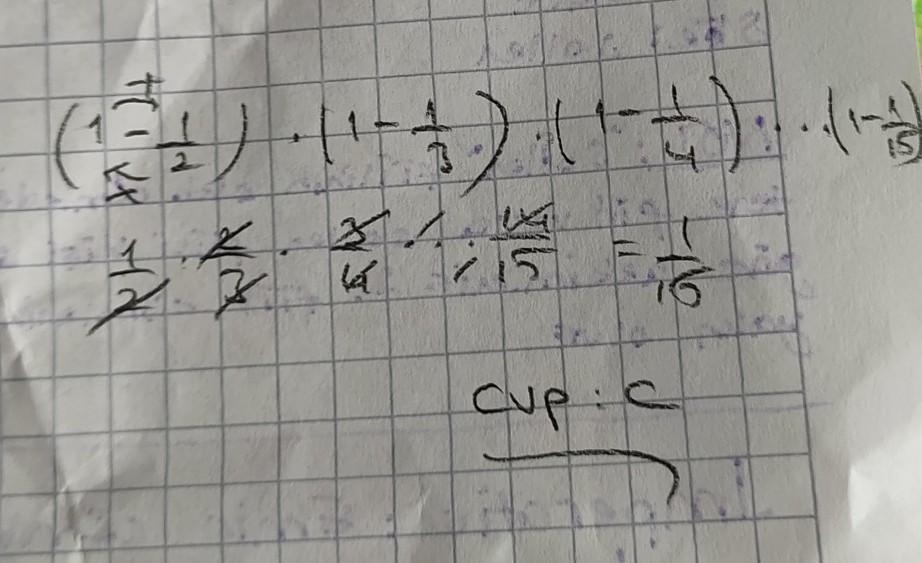 (1 - 1/2) · (1 - 1/3) · (1 - 1/4) · · · (1 - 1/15)
1/2 · 2/3 · 3/4 · · · 14/15 = 1/15
cvp : C